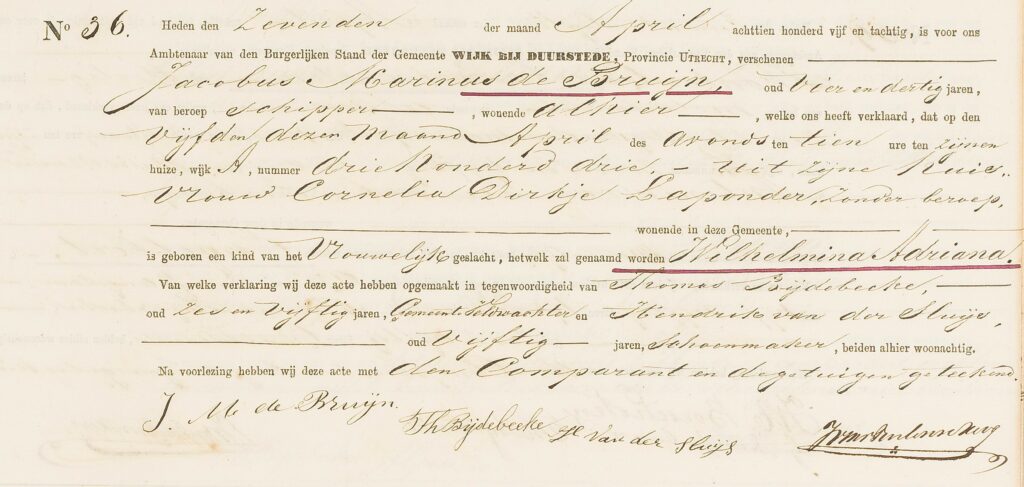 No 36. Heden den Zevenden der maand April achttien honderd vijf en tachtig, is voor ons
Ambtenaar van den Burgerlijken Stand der Gemeente WIJK BIJ DUURSTEDE, Provincie UTRECHT, verschenen
Jacobus Marinus de Bruijn, oud vier en dertig jaren,
van beroep schipper, wonende alhier, welke ons heeft verklaard, dat op den
Vijfden dezer maand April des avonds ten tien ure ten zijnen
huize, wijk A, nummer driehonderd drie, - uit zijne huis-
vrouw Cornelia Dirkje Laponder, zonder beroep,
wonende in deze Gemeente,
is geboren een kind van het Vrouwelijk geslacht, hetwelk zal genaamd worden Wilhelmina Adriana.
Van welke verklaring wij deze acte hebben opgemaakt in tegenwoordigheid van Thomas Bijdebecke,
oud Zes en Vijftig jaren, Gemeente Veldwachter en Hendrik van der Sluijs,
oud Vijftig jaren, Schoenmaker, beiden alhier woonachtig.
Na voorlezing hebben wij deze acte met den Comparant en de getuigen geteekend.
J. M. de Bruijn.
Th Bijdebecke H van der Sluijs